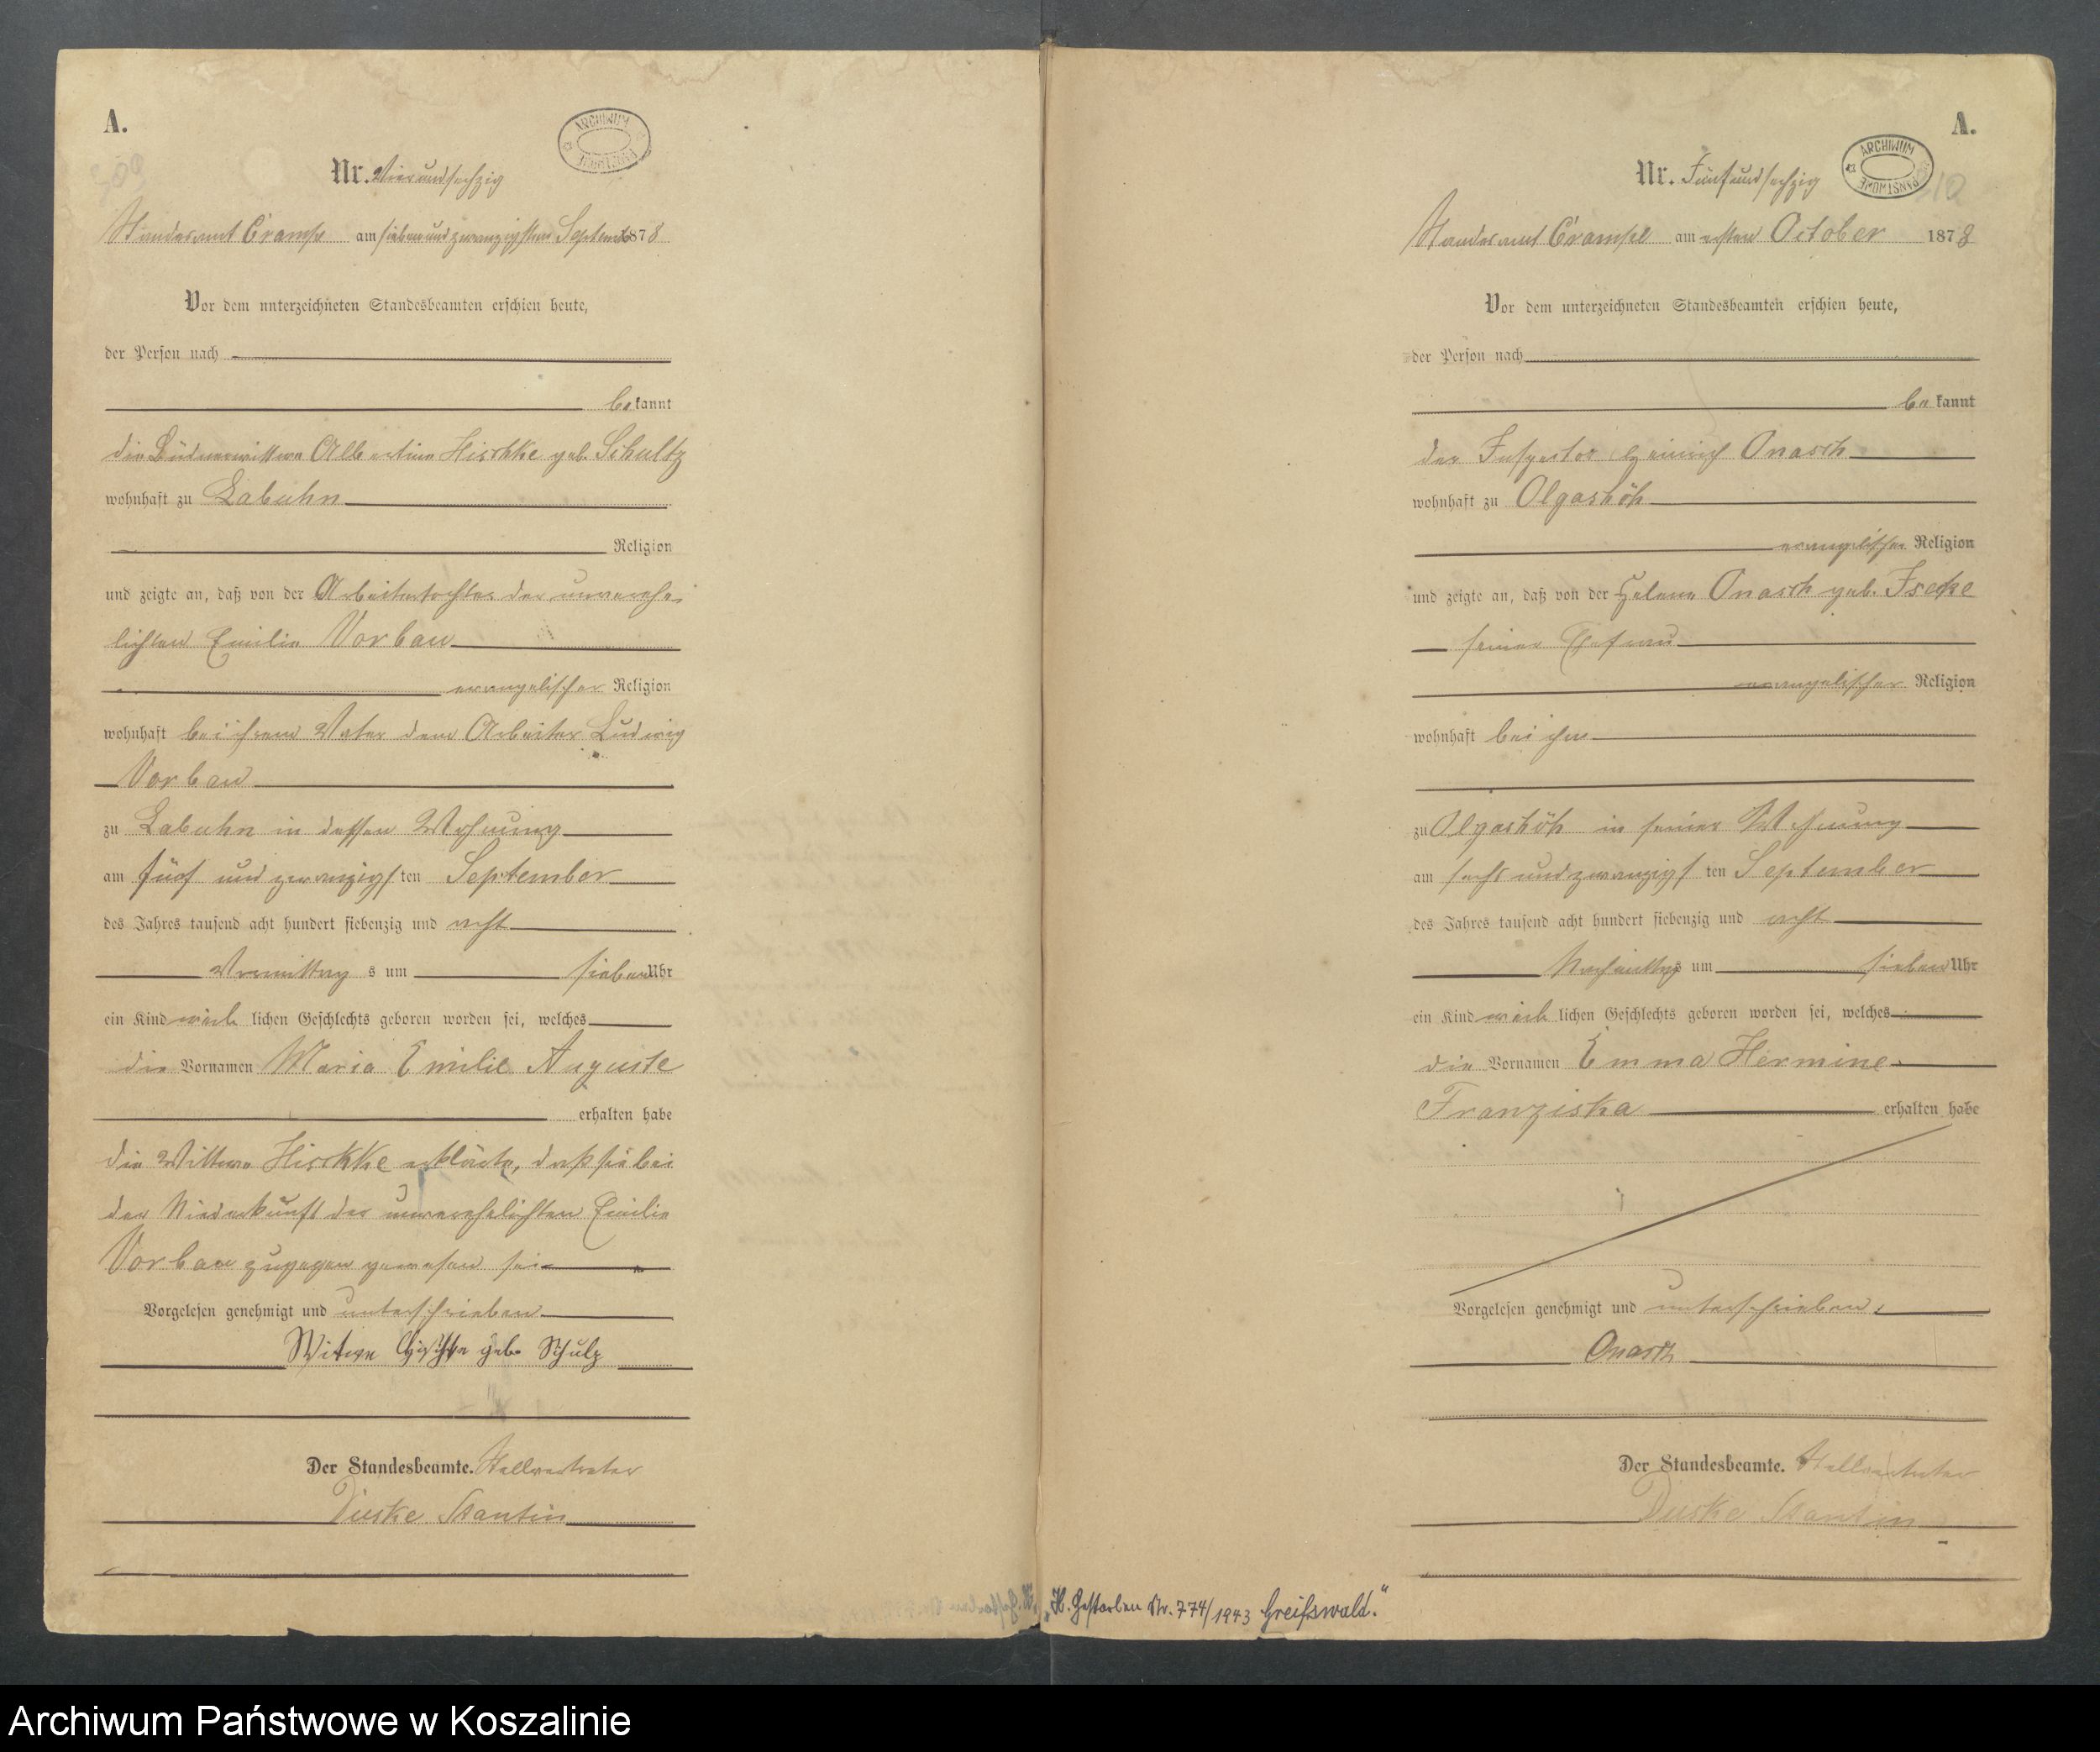 A.
309
ARCHIWUM PAŃSTWOWE
Nr. Vierundsechzig
Standesamt Crampe am siebenundzwanzigsten September 1878
Vor dem unterzeichneten Standesbeamten erschien heute,
der Person nach
bekannt
die Büdnerwittwe Albertine Hischke geb. Schultz
wohnhaft zu Labuhn
Religion
und zeigte an, daß von der Arbeitertochter der unverehe-
lichten Emilie Vorbau
evangelischer Religion
wohnhaft bei ihrem Vater dem Arbeiter Ludwig
Vorbau
zu Labuhn in dessen Wohnung
am fünf und zwanzigsten September
des Jahres tausend acht hundert siebenzig und acht
Vormittags um sieben Uhr
ein Kind weiblichen Geschlechts geboren worden sei, welches
die Vornamen Maria Emilie Auguste
erhalten habe
die Wittwe Hischke erklärte, daß sie bei
der Niederkunft der unverehelichten Emilie
Vorbau zugegen gewesen sei
Vorgelesen genehmigt und unterschrieben
Witwe Hischke geb. Schulz
Der Standesbeamte. Stellvertreter
A.
310
ARCHIWUM PAŃSTWOWE
Nr. Fünfundsechzig
Standesamt Crampe am ersten October 1878
Vor dem unterzeichneten Standesbeamten erschien heute,
der Person nach
bekannt
der Inspector Heinrich Onasch
wohnhaft zu Olgashöh
evangelischer Religion
und zeigte an, daß von der Helene Onasch geb. Iseke
seiner Ehefrau
evangelischer Religion
wohnhaft bei ihm
zu Olgashöh in seiner Wohnung
am sechs und zwanzigsten September
des Jahres tausend acht hundert siebenzig und acht
Nachmittags um sieben Uhr
ein Kind weiblichen Geschlechts geboren worden sei, welches
die Vornamen Emma Hermine
Franziska erhalten habe
Vorgelesen genehmigt und unterschrieben
Onasch
Der Standesbeamte. Stellvertreter
„H. Gestorben Nr. 774/1943 Greifswald."
Archiwum Państwowe w Koszalinie